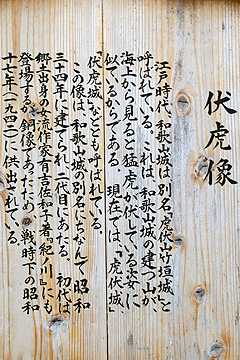 伏虎像
江戸時代、和歌山城は別名「虎伏竹垣城」と
呼ばれている。これは、和歌山城の建つ山が、
海上から見ると猛虎が伏している姿に
似ているからである。現在では、「虎伏城」
「伏虎城」などとも呼ばれている。
この像は、和歌山城の別名にちなんで昭和
三十四年に建てられ、二代目にあたる。初代は、
郷土出身の女流作家有吉佐和子著『紀ノ川』にも
登場する。銅像であったため、戦時下の昭和
十七年(一九四二)に供出されている。